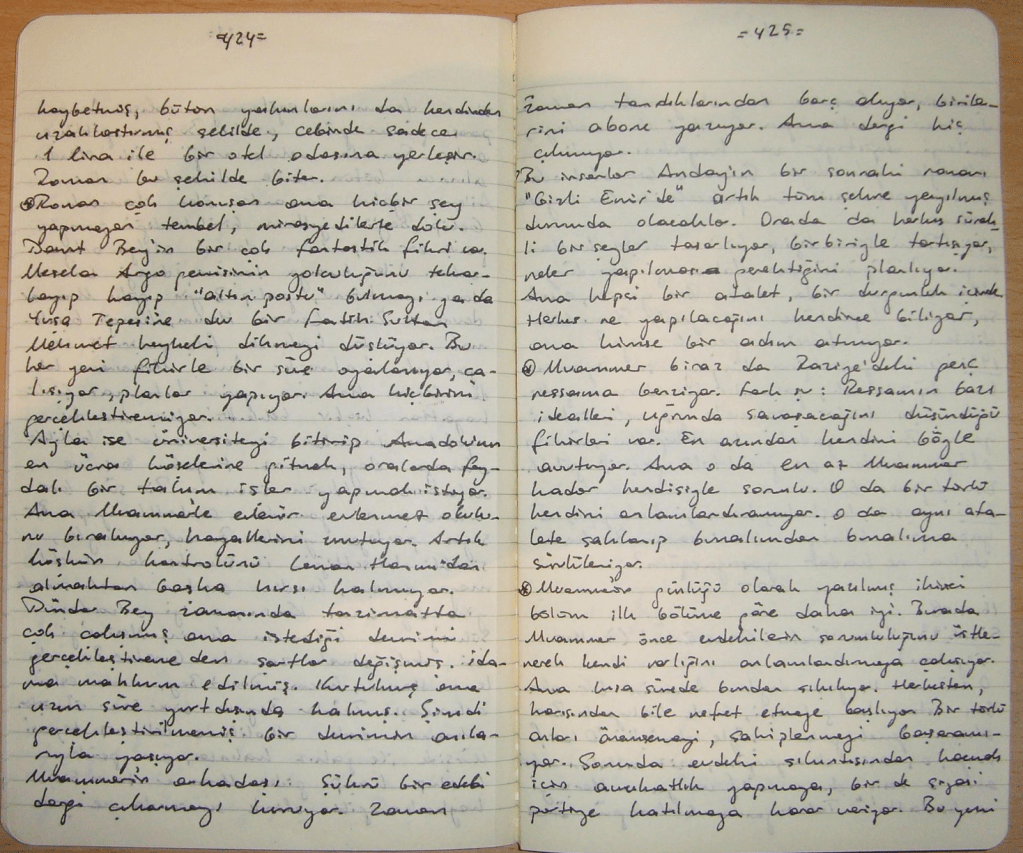 =424=
kaybetmiş, bütün yakınlarını da kendinden
uzaklaştırmış şekilde, cebinde sadece
1 lira ile bir otel odasına yerleşir.
Roman bu şekilde biter.
Roman çok konuşan ama hiçbir şey
yapmayan tembel, mirasyedilerle dolu.
Davut Bey'in bir çok fantastik fikri var.
Mesela Argo gemisinin yolculuğunu tekrar-
layıp kayıp "altın postu" bulmayı ya da
Yuşa Tepesine dev bir Fatih Sultan
Mehmet heykeli dikmeyi düşlüyor. Bu
her yeni fikirle bir süre oyalanıyor, ça-
lışıyor, planlar yapıyor. Ama hiçbirini
gerçekleştiremiyor.
Ayla ise üniversiteyi bitirip Anadolunun
en ücra köşelerine gitmek, oralarda fay-
dalı bir takım işler yapmak istiyor.
Ama Muammerle evlenir evlenmez okulu-
nu bırakıyor, hayallerini unutuyor. Artık
köşkün kontrolünü Hanım'dan
almaktan başka hırsı kalmıyor.
Dündar Bey zamanında
çok çalışmış ama istediği devrimi
gerçekleştiremeden şartlar değişmiş. ida-
ma mahkum edilmiş. Kurtulmuş ama
uzun süre yurtdışında kalmış. Şimdi
gerçekleştirilmemiş bir devrimin anıla-
rıyla yaşıyor.
Muammerin arkadaşı Şükrü bir edebi
dergi çıkarmayı kuruyor. Zaman
=425=
zaman tanıdıklarından borç alıyor, birile-
rini abone yazıyor. Ama dergi hiç
çıkmıyor.
Bu insanlar Anday'ın bir sonraki romanı
"Gizli Emir'de" artık tüm şehre yayılmış
durumda olacaklar. Orada da herkes sürek-
li bir şeyler tasarlıyor, birbiriyle tartışıyor,
neler yapılması gerektiğini planlıyor.
Ama hepsi bir atalet, bir durgunluk içinde
Herkes ne yapılacağını kendince biliyor,
ama kimse bir adım atmıyor.
Muammer biraz da Raziye'deki genç
ressama benziyor. Fark şu: Ressamın bazı
idealleri, uğrunda savaşacağını düşündüğü
fikirleri var. En azından kendini böyle
avutuyor. Ama o da en az Muammer
kadar kendisiyle sorunlu. O da bir türlü
kendini anlamlandıramıyor. O da aynı ata-
lete saklanıp bunalımdan bunalıma
sürükleniyor.
Muammerin günlüğü olarak yazılmış ikinci
bölüm ilk bölüme göre daha iyi. Burada
Muammer önce evdekilerin sorumluluğunu üstle-
nerek kendi varlığını anlamlandırmaya çalışıyor.
Ama kısa sürede bundan sıkılıyor. Herkesten,
karısından bile nefret etmeye başlıyor. Bir türlü
onları önemsemeyi, sahiplenmeyi başaramı-
yor. Sonunda evdeki sıkıntısından kaçmak
için avukatlık yapmaya, bir de siyasi
partiye katılmaya karar veriyor. Bu yeni